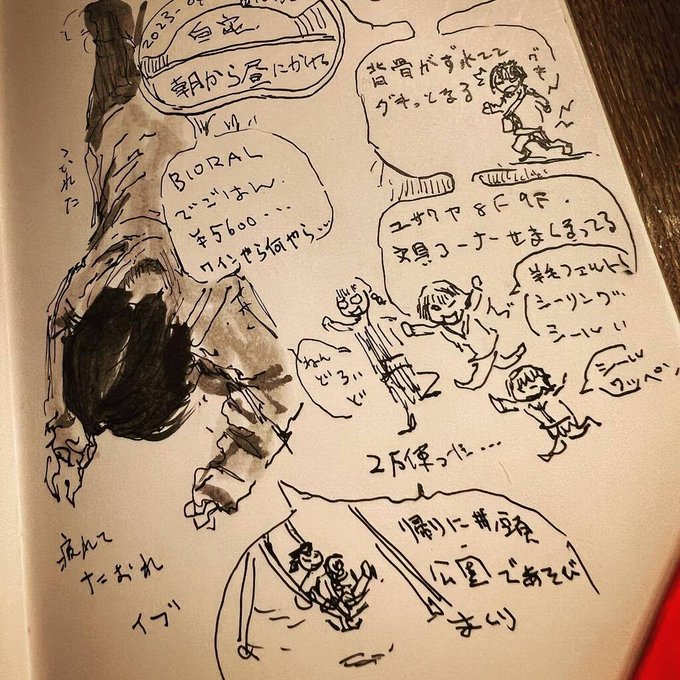 自宅
朝から昼にかける
背骨がずれてて
グキッとなる
グキ
つかれた
BIORAL
でごはん
¥5600...
ワインやら何やら...
ユザワヤ 8F 9F.
文具コーナーせまくなってる
羊毛フェルト!
シーリング
シール
シール
ワッペン
ねん
ど
2万使った...
疲れて
たおれ
イブ
帰りに井の頭
公園であそび
まくり